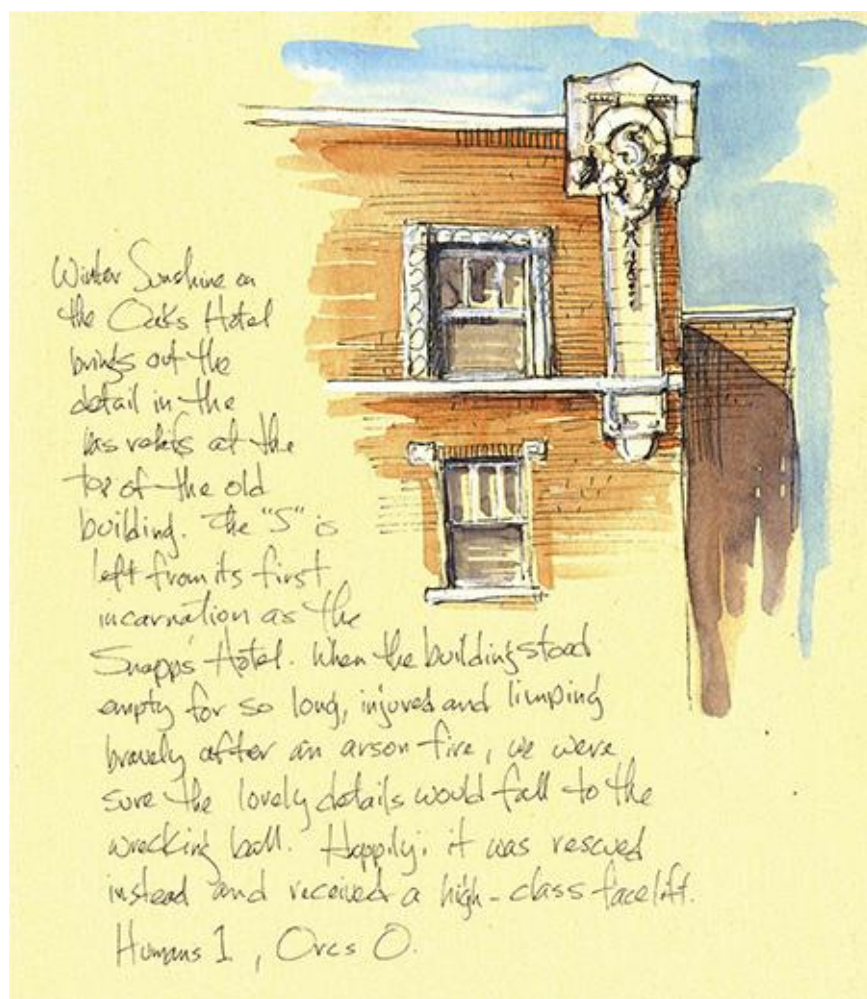 Winter Sunshine on
the Oaks Hotel
brings out the
detail in the
bas reliefs at the
top of the old
building. The "S" is
left from its first
incarnation as the
Snapps Hotel. When the building stood
empty for so long, injured and limping
bravely after an arson fire, we were
sure the lovely details would fall to the
wrecking ball. Happily, it was rescued
instead and received a high-class facelift.
Humans 1, Orcs 0.